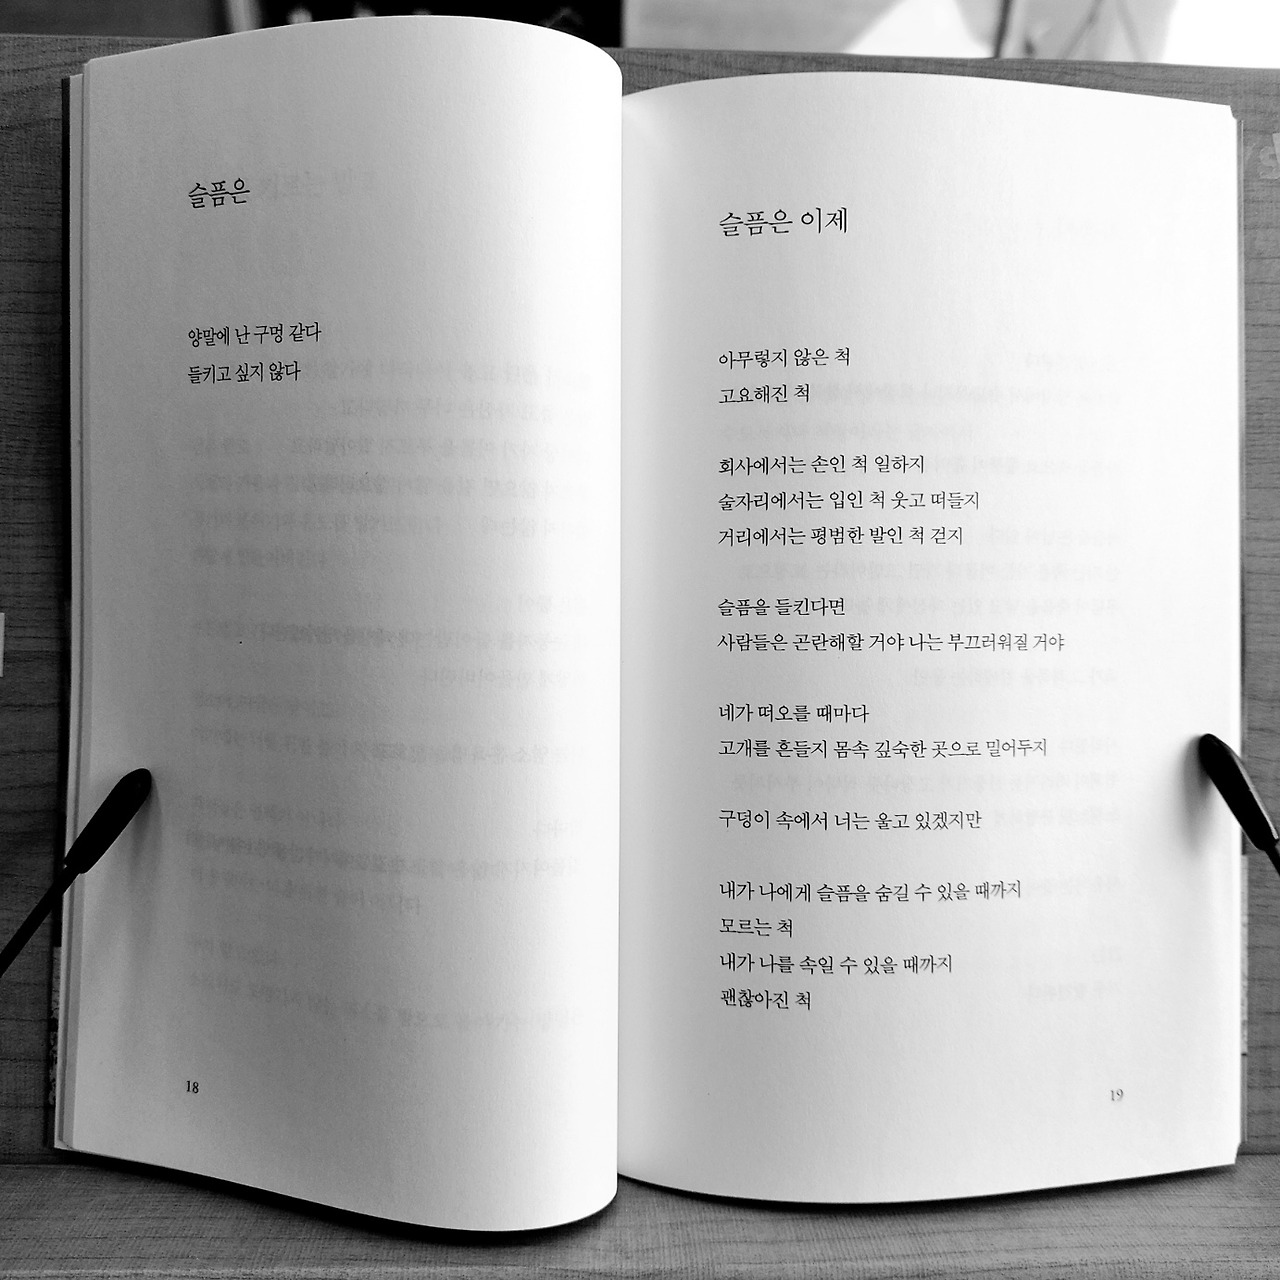 슬픔은
양말에 난 구멍 같다
들키고 싶지 않다
18
슬픔은 이제
아무렇지 않은 척
고요해진 척
회사에서는 손인 척 일하지
술자리에서는 입인 척 웃고 떠들지
거리에서는 평범한 발인 척 걷지
슬픔을 들킨다면
사람들은 곤란해할 거야 나는 부끄러워질 거야
네가 떠오를 때마다
고개를 흔들지 몸속 깊숙한 곳으로 밀어두지
구덩이 속에서 너는 울고 있겠지만
내가 나에게 슬픔을 숨길 수 있을 때까지
모르는 척
내가 나를 속일 수 있을 때까지
괜찮아진 척
19